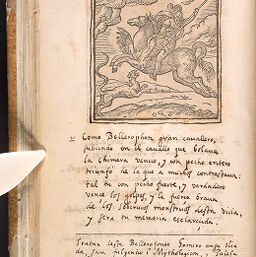 Como Bellerophon gran cavallero,
subiendo en el cavallo que bolava
la chimera vencio, y con pecho entero
triumfo de la que a muchos contrastava:
tal tu con pecho fuerte, y verdadero
vence los golpes, y la fuerça brava
de los sobervios monstruos desta vida,
y sera tu memoria esclarecida.
Tratan deste Bellerofonte Homero en su Ilia
da, Juan Mythologicon, y Palefa